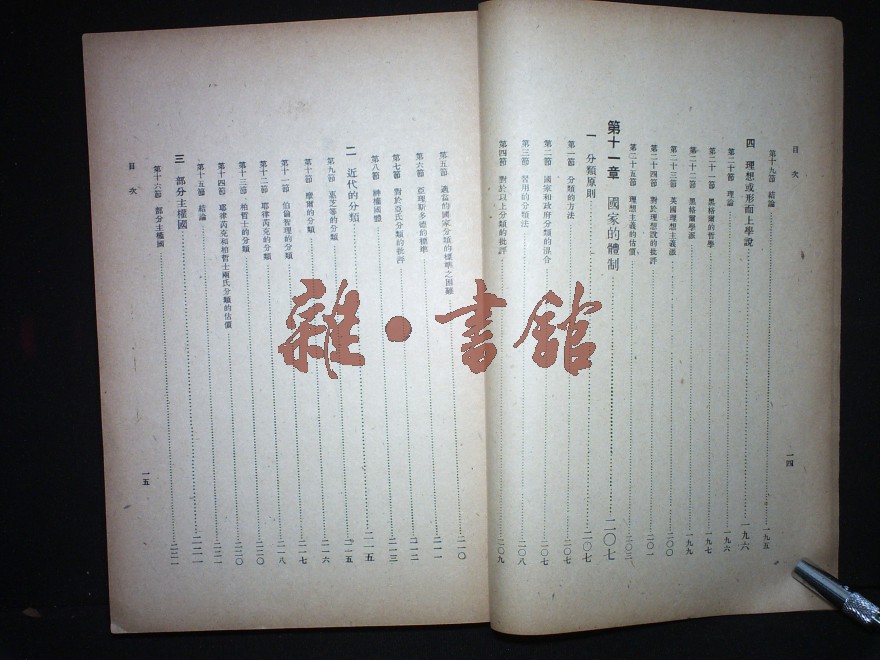 目次
第十九節 結論 一九五
四 理想或形而上學說 一九六
第二十節 理論 一九六
第二十一節 黑格爾的哲學 一九七
第二十二節 黑格爾學派 一九九
第二十三節 英國理想主義派
第二十四節 對於理想說的批評 二〇一
第二十五節 理想主義的估價 二〇三
第十一章 國家的體制 二〇七
一 分類原則 二〇七
第一節 分類的方法 二〇七
第二節 國家和政府分類的混合 二〇七
第三節 習用的分類法 二〇八
第四節 對於以上分類的批評 二〇九
一四
第五節 適當的國家分類的標準之困難 二一〇
第六節 亞理斯多德的標準 二一一
第七節 對於亞氏分類的批評 二一二
第八節 神權國體 二一三
二 近代的分類 二一五
第九節 惠芝等的分類 二一五
第十節 摩爾的分類 二一六
第十一節 伯倫智理的分類 二一七
第十二節 耶律芮克的分類 二一八
第十三節 柏哲士的分類 二二〇
第十四節 耶律芮克和柏哲士兩氏分類的估價 二二〇
第十五節 結論 二二一
三 部分主權國 二二一
第十六節 部分主權國 二二一
目次
一五
雜·書館